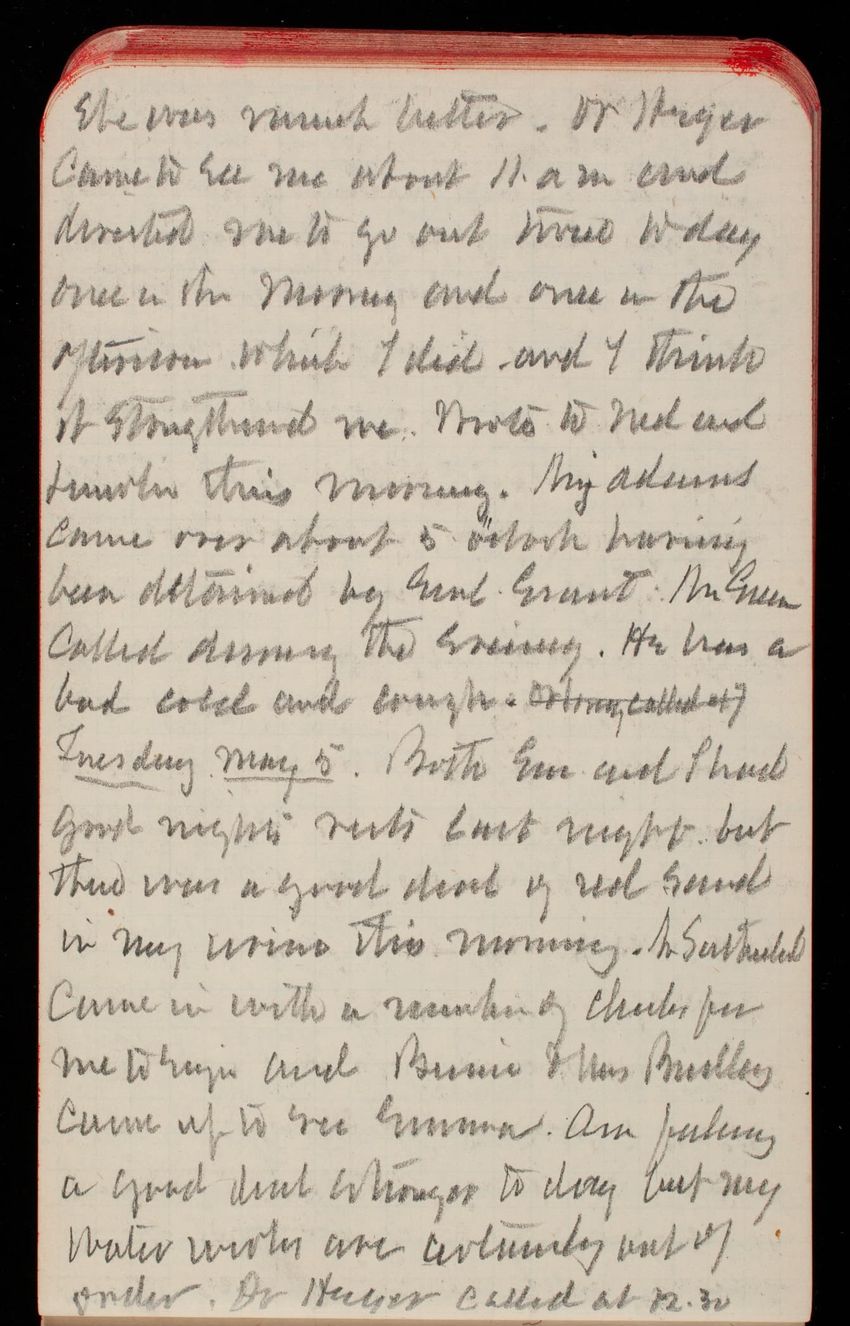 She was much better. Dr Heger
Came to see me about 11. a m and
directed me to go out twice to day
once in the Morning and once in the
afternoon which I did and I think
it strengthened me. Wrote to Ned and
this morning. Adams
came over about 5 o'clock having
been detained by Genl Grant. Mr Green
Called during the Evening. He has a
bad cold and cough. called at 7
Tuesday May 5. Both Em and I had
good nights rests last night. but
there was a good deal of red sand
in my urine this morning. Mr
Came in with a number of checks for
me to sign and Bernie & Mrs Bradley
Came up to see Emma. Am feeling
a good deal stronger to day but my
Water works are certainly out of
order. Dr Heger called at 12.30